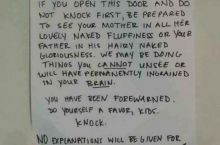 IF YOU OPEN THIS DOOR AND DO
NOT KNOCK FIRST, BE PREPARED
TO SEE YOUR MOTHER IN ALL HER
LOVELY NAKED FLUFFINESS OR YOUR
FATHER IN HIS HAIRY NAKED
GLORIOUSNESS. WE MAY BE DOING
THINGS YOU CANNOT UNSEE OR
WILL HAVE PERMANENTLY INGRAINED
IN YOUR BRAIN.
YOU HAVE BEEN FOREWARNED.
DO YOURSELF A FAVOR, KIDS.
KNOCK.
NO EXPLANATIONS WILL BE GIVEN FOR